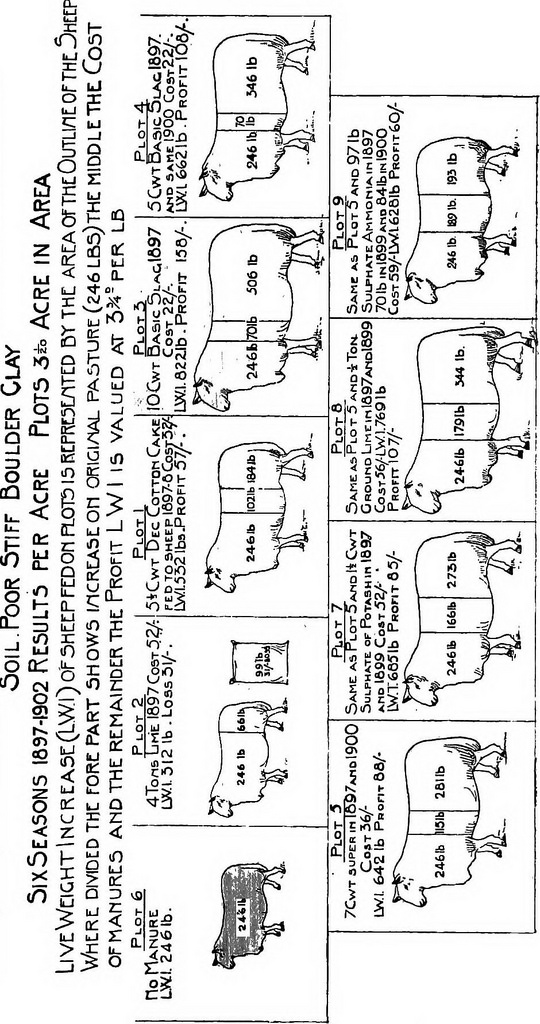 SOIL. POOR STIFF BOULDER CLAY
SIX SEASONS 1897-1902 RESULTS PER ACRE PLOTS 3 1/20 ACRE IN AREA
LIVE WEIGHT INCREASE (L.W.I.) OF SHEEP FED ON PLOTS IS REPRESENTED BY THE AREA OF THE OUTLINE OF THE SHEEP
WHERE DIVIDED THE FORE PART SHOWS INCREASE ON ORIGINAL PASTURE (246 LBS) THE MIDDLE THE COST
OF MANURES AND THE REMAINDER THE PROFIT L W I IS VALUED AT 3¾D PER LB
PLOT 6
NO MANURE
L.W.I. 246 lb.
246 lb
PLOT 2
4 TONS LIME 1897 COST 52/-
L.W.I. 312 lb. LOSS 31/-
246 lb
66 lb
99 lb
31/-LOSS
PLOT 1
5½ CWT DEC COTTON CAKE
FED TO SHEEP 1897-8 COST 32/-
L.W.I. 532 lbs. PROFIT 57/-
246 lb
102 lb
184 lb
PLOT 3
10 CWT BASIC SLAG, 1897
COST 22/-
L.W.I. 822 lb. PROFIT 158/-
246 lb
70 lb
506 lb
PLOT 4
5 CWT BASIC SLAG 1897
AND SAME 1900 COST 22/-
L.W.I. 662 lb. PROFIT 108/-
246 lb
70 lb
346 lb
PLOT 5
7 CWT SUPER IN 1897 AND 1900
COST 36/-
L.W.I. 642 lb PROFIT 88/-
246 lb
115 lb
281 lb
PLOT 7
SAME AS PLOT 5 AND 1½ CWT
SULPHATE OF POTASH IN 1897
AND 1899 COST 52/-
L.W.I. 685 lb PROFIT 85/-
246 lb
166 lb
273 lb
PLOT 8
SAME AS PLOT 5 AND ½ TON.
GROUND LIME IN 1897 AND 1899
COST 56/- L.W.I. 769 lb
PROFIT 107/-
246 lb
179 lb
344 lb.
PLOT 9
SAME AS PLOT 5 AND 97 lb
SULPHATE AMMONIA IN 1897
70 lb IN 1899 AND 84 lb IN 1900
COST 59/- L.W.I. 628 lb PROFIT 60/-
246 lb.
189 lb.
193 lb